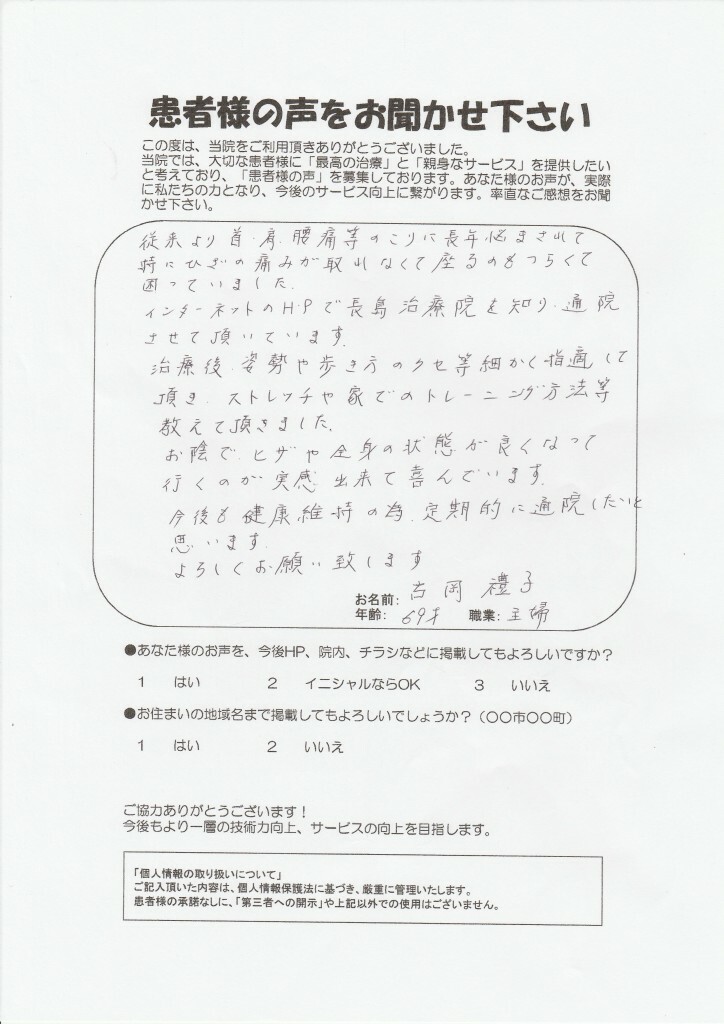 患者様の声をお聞かせ下さい
この度は、当院をご利用頂きありがとうございました。
当院では、大切な患者様に「最高の治療」と「親身なサービス」を提供したい
と考えており、「患者様の声」を募集しております。あなた様のお声が、実際
に私たちの力となり、今後のサービス向上に繋がります。率直なご感想をお聞
かせ下さい。
従来より首、肩、腰痛等のこりに長年悩まされて
特にひざの痛みが取れなくて座るのもつらくて
困っていました。
インターネットのH・Pで長島治療院を知り、通院
させて頂いています。
治療後、姿勢や歩き方のクセ等細かく指適して
頂き、ストレッチや家でのトレーニング方法等
教えて頂きました。
お陰で、ヒザや全身の状態が良くなって
行くのが実感出来て喜んでいます。
今後も健康維持の為、定期的に通院したいと
思います。
よろしくお願い致します
お名前: 吉岡禮子
年齢: 69才 職業: 主婦
●あなた様のお声を、今後HP、院内、チラシなどに掲載してもよろしいですか？
1 はい 2 イニシャルならOK 3 いいえ
●お住まいの地域名まで掲載してもよろしいでしょうか？（〇〇市〇〇町）
1 はい 2 いいえ
ご協力ありがとうございます！
今後もより一層の技術力向上、サービスの向上を目指します。
「個人情報の取り扱いについて」
ご記入頂いた内容は、個人情報保護法に基づき、厳重に管理いたします。
患者様の承諾なしに、「第三者への開示」や上記以外での使用はございません。